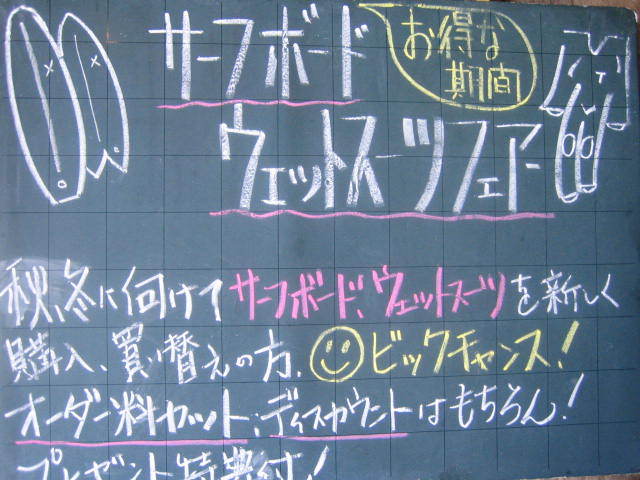 サーフボード
お得な
期間
ウェットスーツフェアー
秋、冬に向けてサーフボード、ウェットスーツを新しく
購入、買い替えの方、ビックチャンス!
オーダー料カット、ディスカウントはもちろん!
プレゼント特典付!